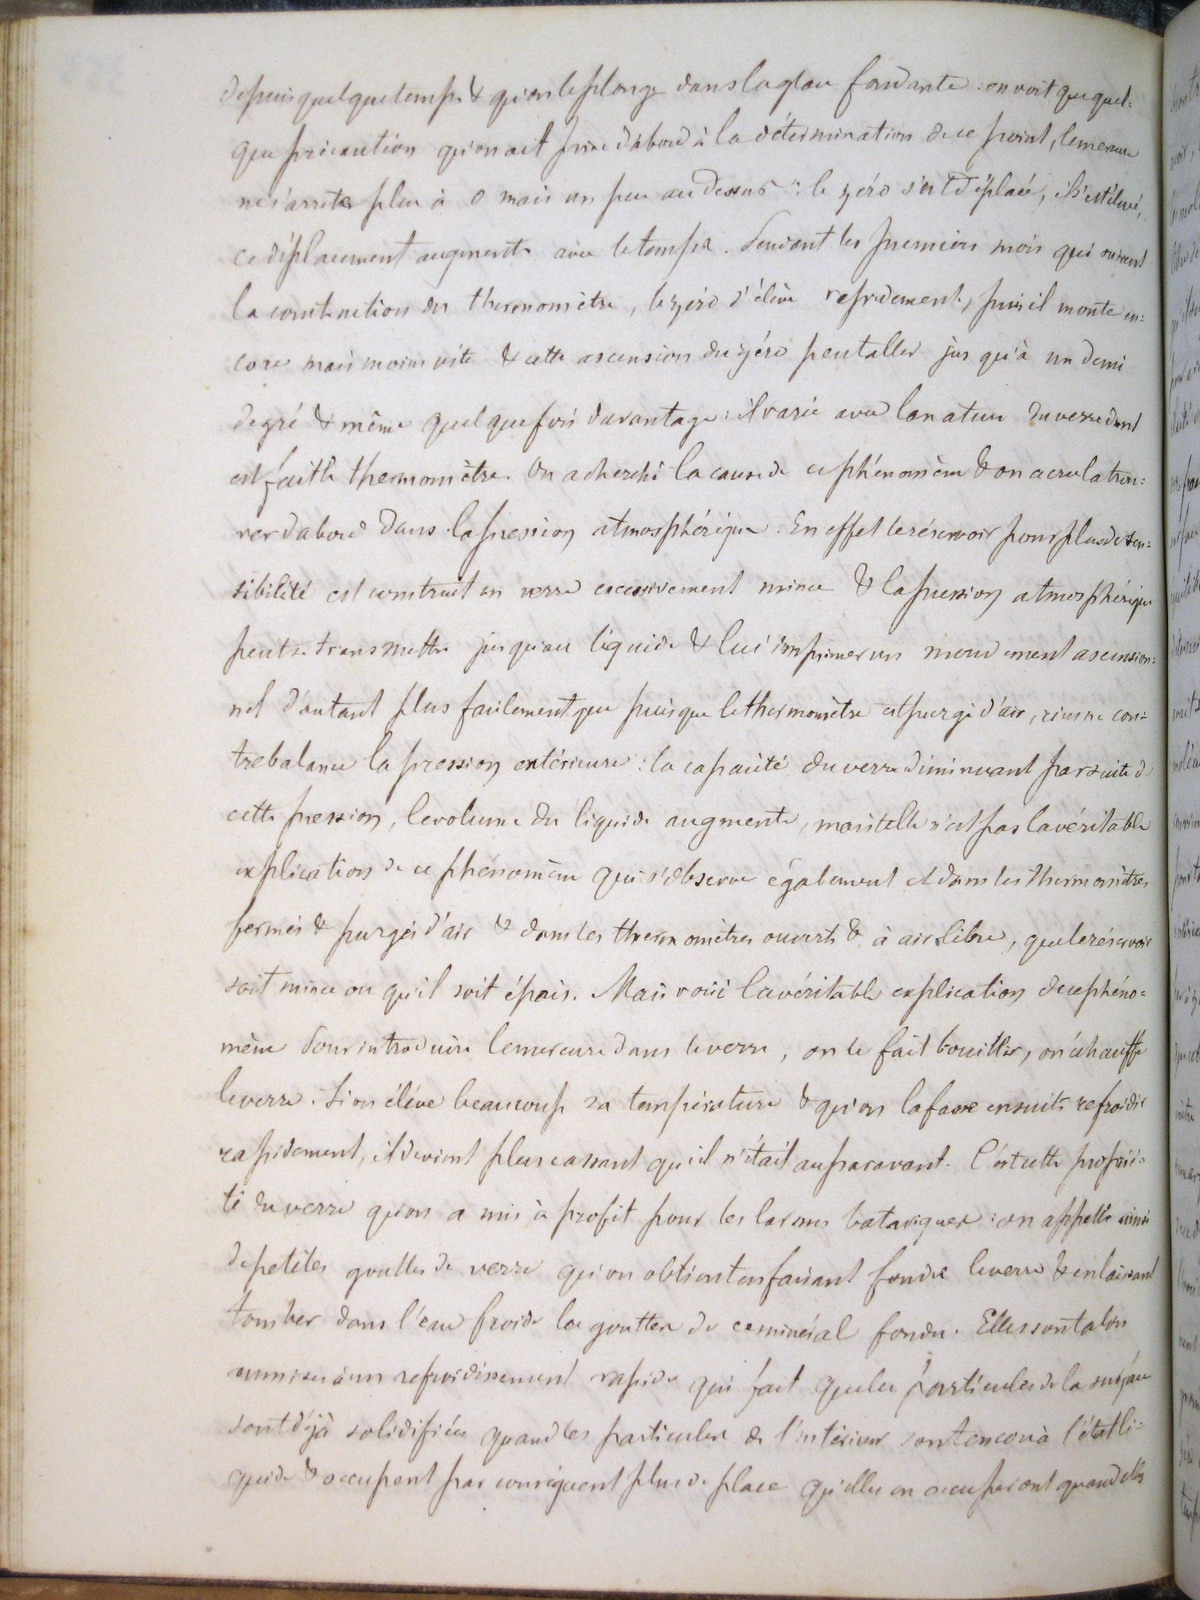 depuis quelque temps & qu'on le plonge dans la glace fondante : on voit que quel-
que précaution qu'on ait prise d'abord à la détermination de ce point, le mercure
ne s'arrête plus à 0 mais un peu au dessus : le zéro s'est déplacé, il s'est élevé,
ce déplacement augmente avec le temps. Pendant les premiers mois qui suivent
la construction du thermomètre, le zéro s'élève rapidement, puis il monte en-
core mais moins vite & cette ascension du zéro peut aller jusqu'à un demi
degré & même quelquefois davantage : il varie avec la nature du verre dont
est fait le thermomètre. On a cherché la cause de ce phénomène & on a cru la trou-
ver d'abord dans la pression atmosphérique. En effet le réservoir pour plus de sen-
sibilité est construit en verre excessivement mince & la pression atmosphérique
peut se transmettre jusqu'au liquide & lui imprimer un mouvement ascension-
nel d'autant plus facilement que puisque le thermomètre est purgé d'air, rien ne con-
trebalance la pression extérieure : la capacité du verre diminuant par suite de
cette pression, le volume du liquide augmente, mais telle n'est pas la véritable
explication de ce phénomène qui s'observe également et dans les thermomètres
fermés & purgés d'air & dans les thermomètres ouverts & à air libre, que le réservoir
soit mince ou qu'il soit épais. Mais voici la véritable explication de ce phéno-
mène Pour introduire le mercure dans le verre, on le fait bouillir, on échauffe
le verre. Si on élève beaucoup sa température & qu'on la fasse ensuite refroidir
rapidement, il devient plus cassant qu'il n'était auparavant. C'est cette proprié-
té du verre qu'on a mis à profit pour les larmes bataviques : on appelle ainsi
de petites gouttes de verre qu'on obtient en faisant fondre le verre & en laissant
tomber dans l'eau froide les gouttes de ce minéral fondu. Elles sont alors
soumises à un refroidissement rapide qui fait que les particules de la surface
sont déjà solidifiées quand les particules de l'intérieur sont encore à l'état li-
quide & occupent par conséquent plus de place qu'elles en occuperont quand elles